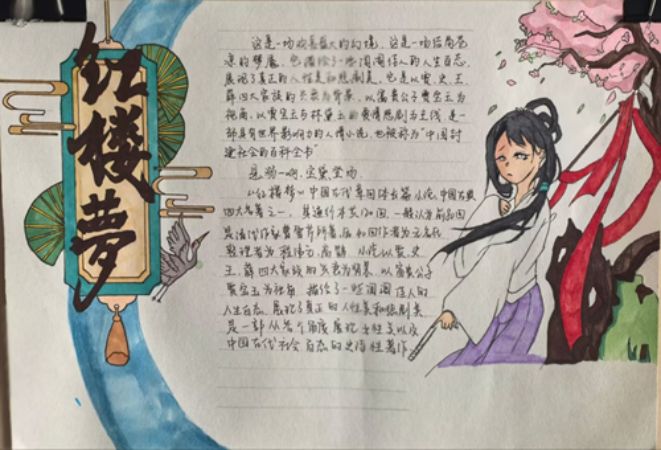 红楼梦
这是一场欢喜盛大的幻境,这是一场结局苍
凉的梦魇,它描绘了一些闺阁佳人的人生百态,
展现了真正的人性美和悲剧美,它是以贾、史、王、
薛四大家族的兴衰为背景,以富贵公子贾宝玉为
视角,以贾宝玉与林黛玉的爱情悲剧为主线,是一
部具有世界影响力的人情小说,也被称为“中国封
建社会的百科全书”
《红楼梦》中国古代章回体长篇小说,中国古典
四大名著之一,其通行本共120回,一般认为前80回
是清代作家曹雪芹所著,后40回作者为无名氏
整理者为程伟元、高鹗,小说以贾、史
王、薛四大家族的兴衰为背景,以富贵公子
贾宝玉为视角,描绘了一些闺阁佳人的
人生百态,展现了真正的人性美和悲剧美
是一部从各个角度展现女性美以及
中国古代社会百态的史诗性著作